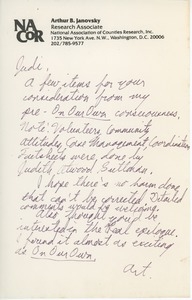 NACOR
Arthur B. Janovsky
Research Associate
National Association of Counties Research, Inc.
1735 New York Ave. N.W., Washington, D.C. 20006
202/785-9577
Judi.
A few items for your
consideration from my
pre-On Our Own consciousness.
Note: Voluntary, Community
Attitudes, Case Management Coordination
factsheets were done by
Judith Atwood
I hope there's no harm done
that can't be corrected. Detailed
comments would be welcome.
Also thought you'd be
interested in the Paul epilogue.
I found it almost as exciting
as On Our Own.
Art.